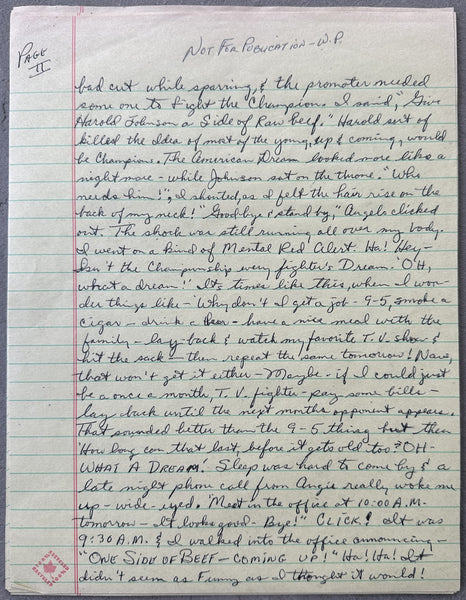 PAGE
II
NOT FOR PUBLICATION - W.P.
bad cut while sparring, & the promoter needed
some one to fight the Champion. I said, "Give
Harold Johnson a Side of Raw Beef." Harold sort of
killed the Idea of most of the young, up & coming, would
be Champions. The American Dream looked more like a
night mare - while Johnson sat on the throne. "Who
needs him!", I shouted, as I felt the hair rise on the
back of my neck! "Goodbye & stand by," Angelo clicked
out. The shock was still running all over my body.
I went on a kind of Mental Red Alert. Ha! Hey -
Isn't the Championship every fighter's Dream. 'OH,
what a dream!' Its times like this, when I won-
der things like - 'Why don't I get a job - 9-5, smoke a
Cigar - drink a Beer - have a nice meal with the
family - lay back & watch my favorite T.V. show &
hit the sack - then repeat the same tomorrow! Naw,
that won't get it either - Maybe - if I could just
be a once a month, T.V. fighter - pay some bills -
lay back until the next months opponent appears.
That sounded better than the 9-5 thing but then
'How long can that last, before it gets old too? OH -
WHAT A DREAM!' Sleep was hard to come by & a
late night phone call from Angie really woke me
up - wide-eyed. "Meet in the office at 10:00 A.M.
tomorrow - It looks good - Bye!" CLICK! It was
9:30 A.M. & I walked into the office announcing -
"ONE SIDE OF BEEF - COMING UP!" Ha! Ha! It
didn't seem as Funny as I thought it would!